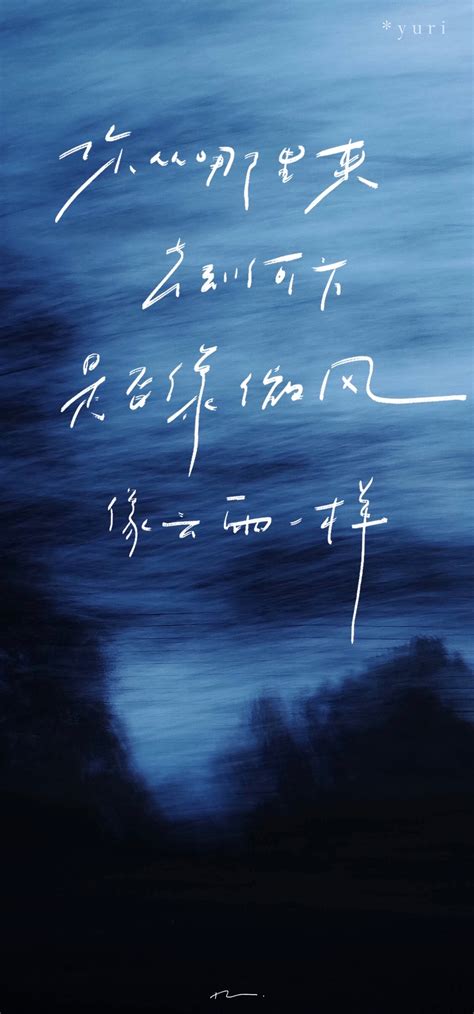 *yuri
你从哪里来
去到何方
是否像微风
像云雨一样